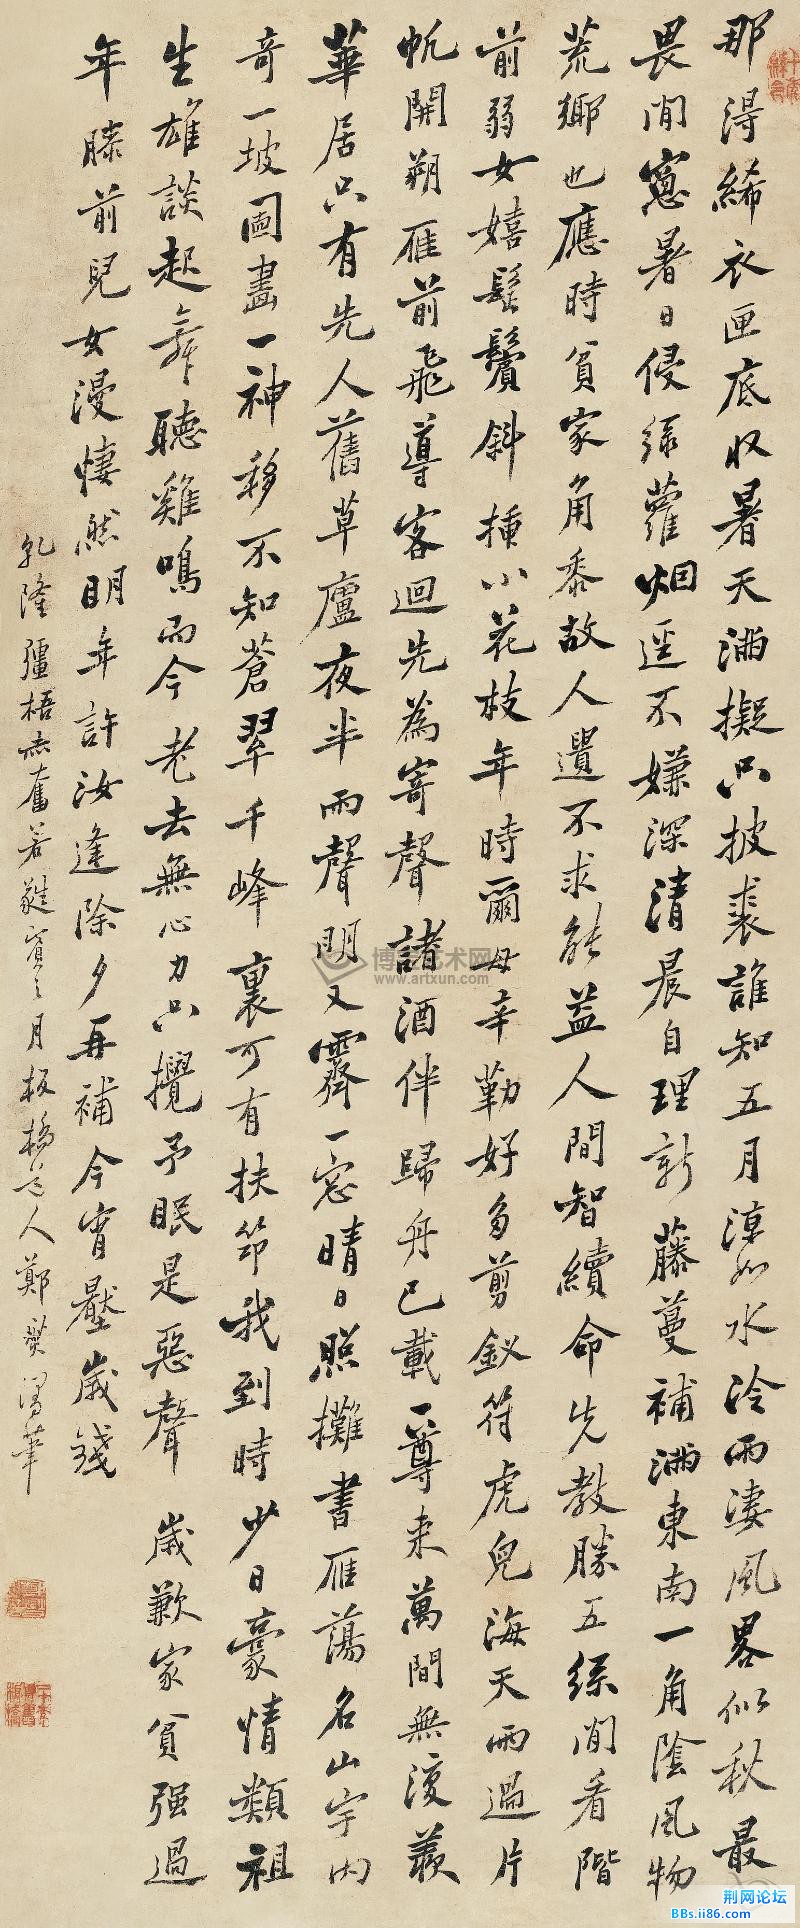 那得絺衣匣底收暑天滿擬只披裘誰知五月涼如水冷雨淒風畧似秋最
畏閒窻暑日侵綠蘿烟逕不嫌深清晨自理新藤蔓補滿東南一角陰風物
荒鄉也應時貧家角黍故人遺不求能益人間智續命先教勝五絲閒看階
前弱女嬉鬆鬢斜插小花枝年時爾母辛勤好多剪釵符虎兒海天雨過片
帆開朔雁前飛導客迴先為寄聲諸酒伴歸舟已載一尊來萬間無復羨
華居只有先人舊草廬夜半雨聲明又霽一窓晴日照攤書雁蕩名山宇內
奇一坡圖畫一神移不知蒼翠千峰裏可有扶筇我到時少日豪情類祖
生雄談起舞聽雞鳴而今老去無心力只攪予眠是惡聲 歲歉家貧強過
年膝前兒女漫悽然明年許汝逢除夕再補今宵壓歲錢
乾隆彊梧赤奮若蕤賓之月板橋道人鄭燮
博宝艺术网
www.artxun.com
荆网论坛
BBs.ii86.com